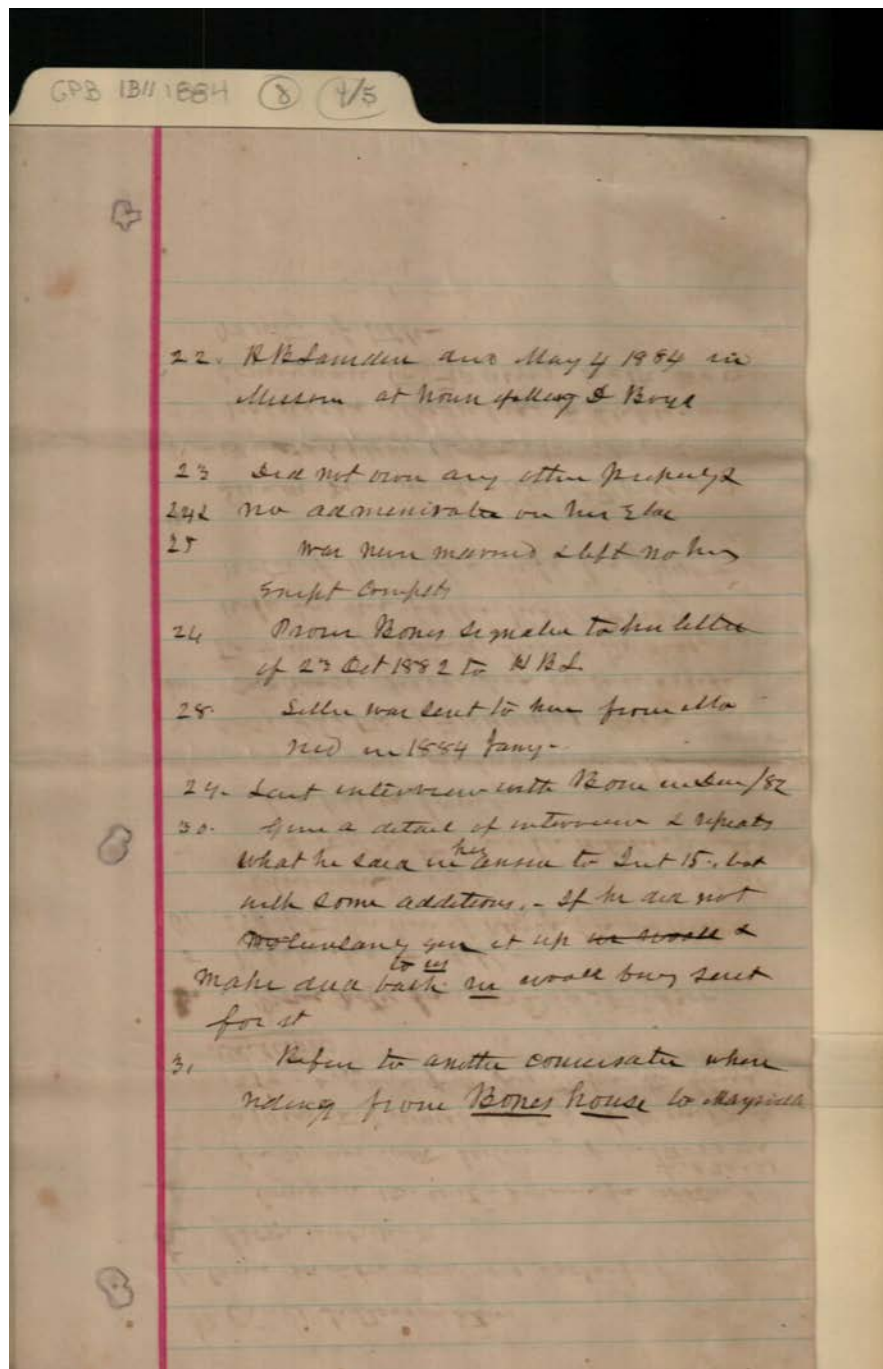 GPB 1B11 1884 8 4/5
22. H B Lamdin died May 4 1884 in
Missouri at house of Mary D Boyd
23 Did not own any other property &
24 & no administrator on her Estate
25 was never married & left no heirs
Except Complts
26 Proves Bones signature to her letter
of 23 Oct 1882 to H B L
28. Letter was sent to her from Mo
in 1884 Jany -
29. Last interview with Bone in /82
30. Gives a detail of interview & repeats
what he said in her answer to Int 15., but
with some additions. - If he did not
voluntarily give it up or would &
make deed back to us we would bring suit
for it
31 Refers to another conversation when
riding from Bones house to Maysville